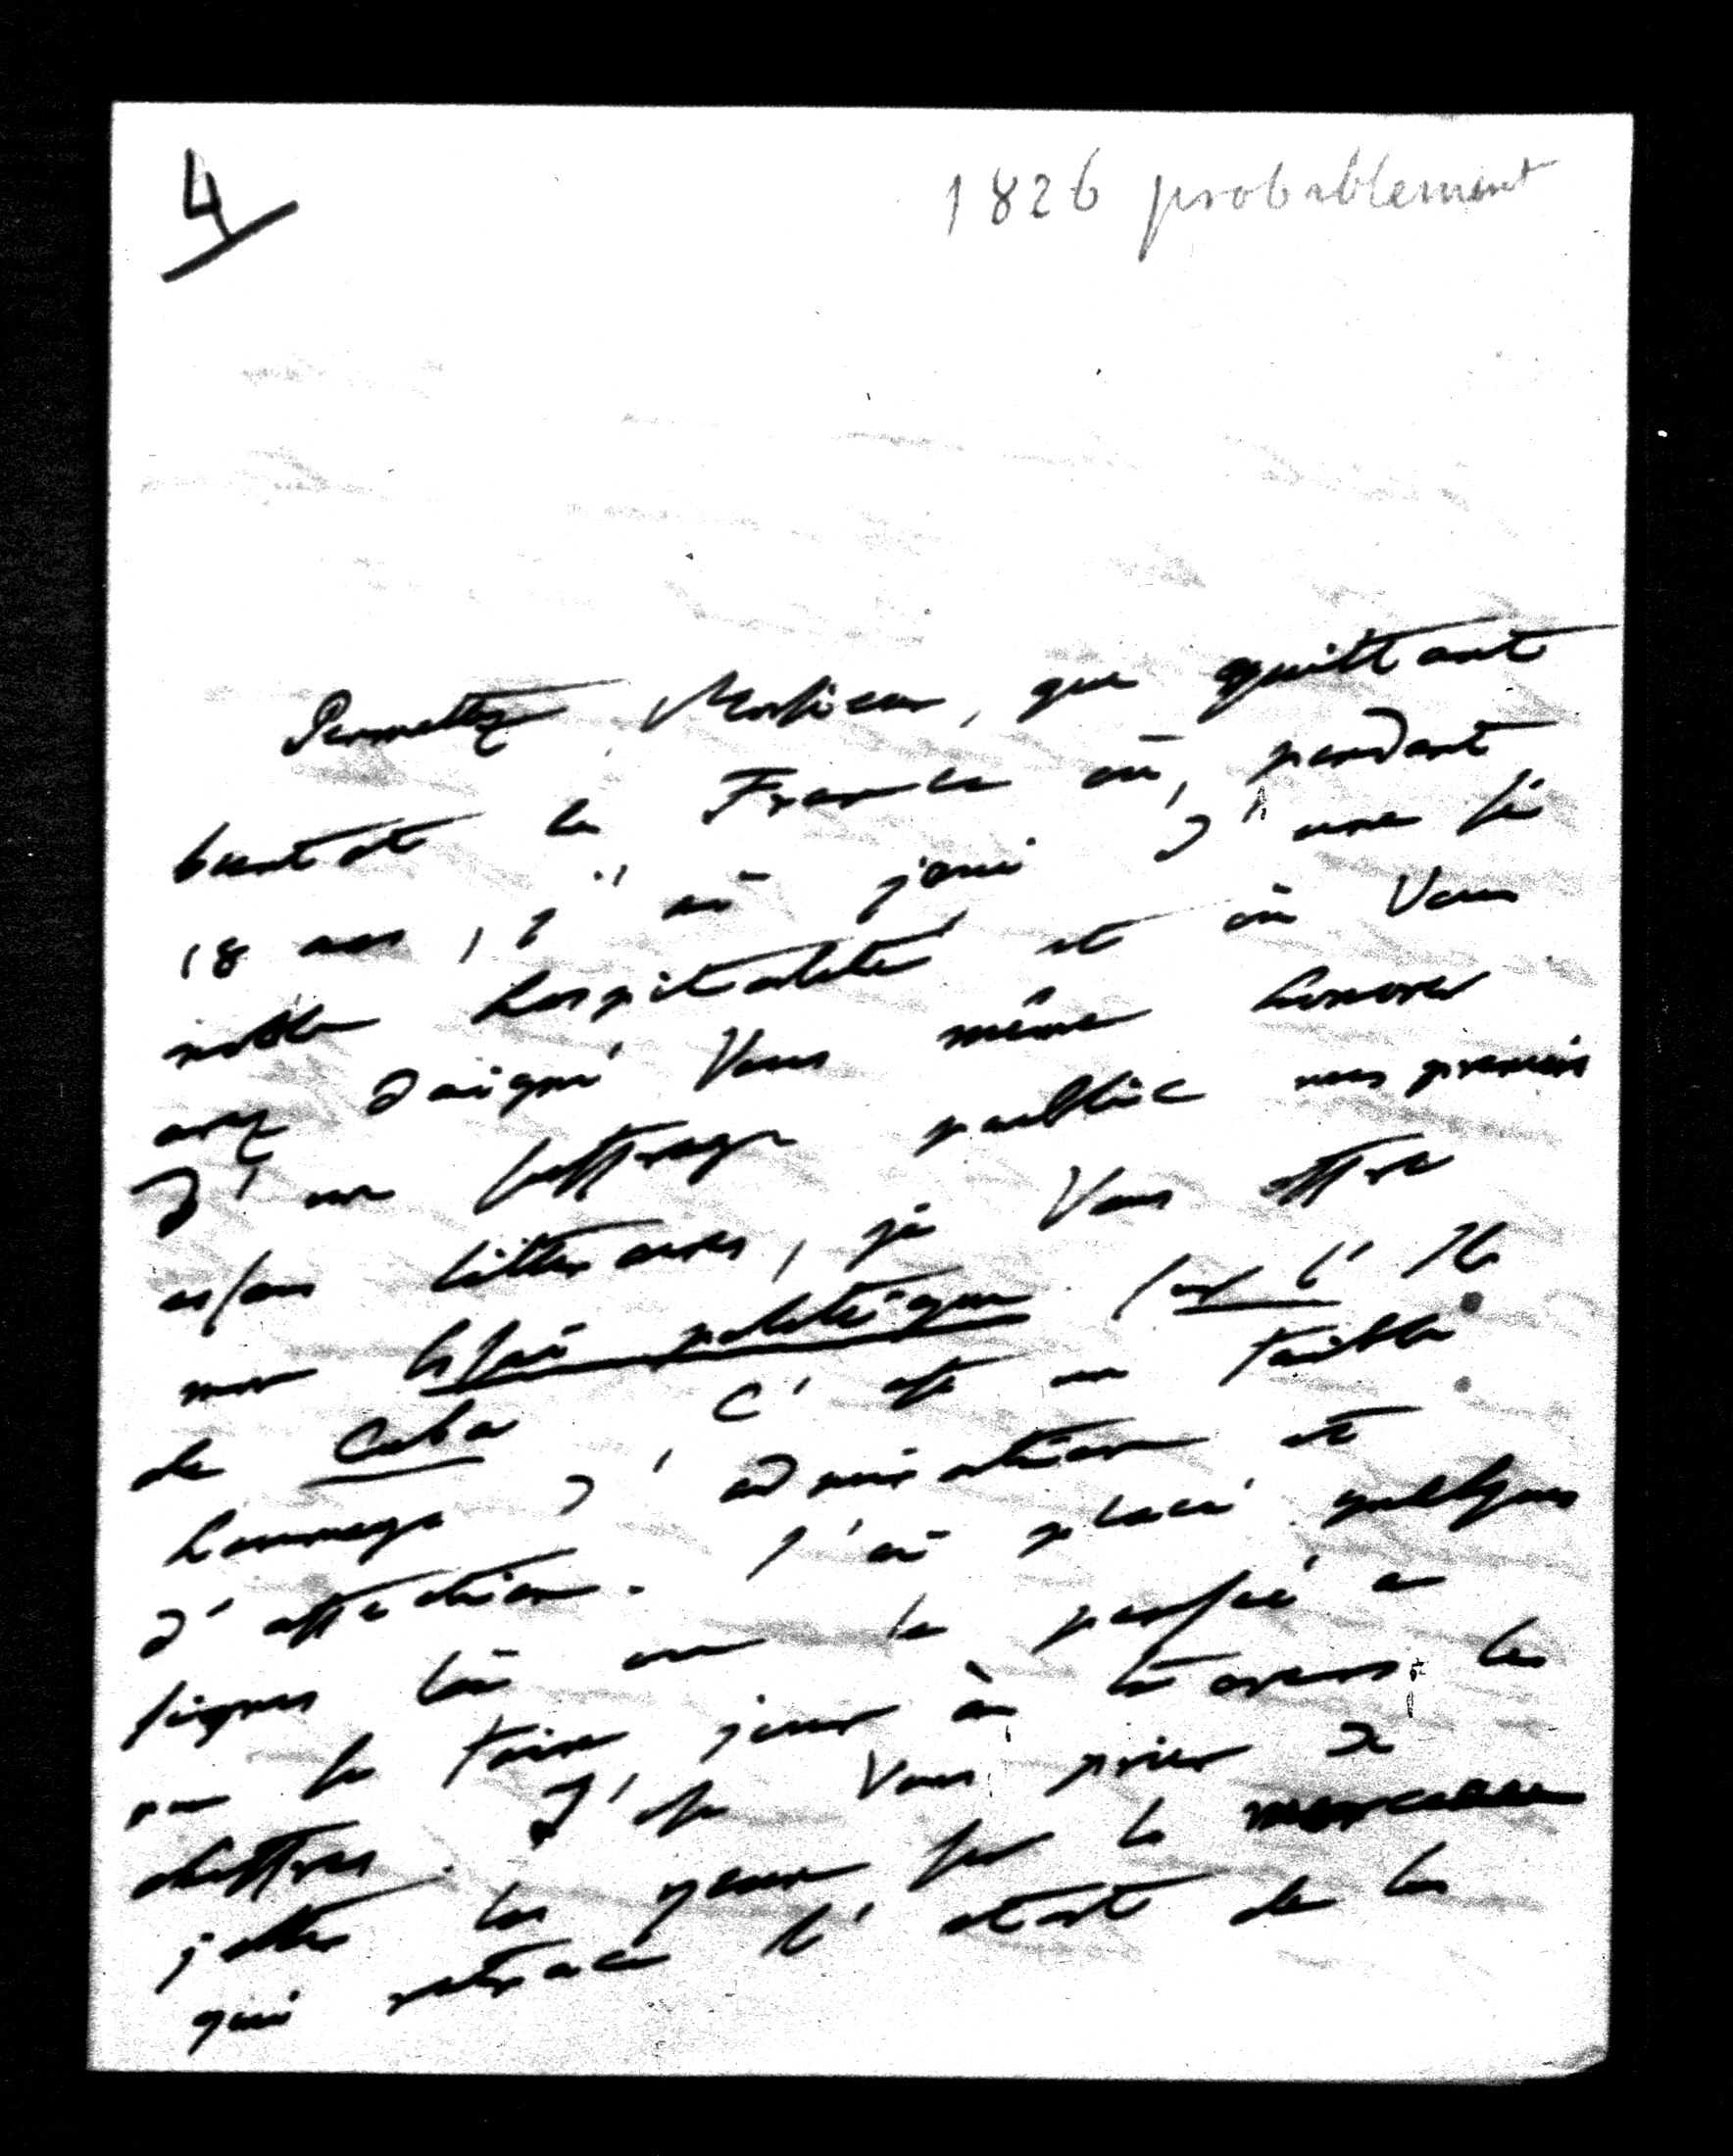 4
1826 probablement
Permettez Monsieur, que quittant
bientot la France où, pendant
18 ans, j'ai joui d'une si
noble hospitalité et où Vous
avez daigné Vous même honorer
d'un suffrage public mes premiers
essais littéraires, je Vous offre
mon Essai politique sur l'Ile
de Cuba C'est un faible
hommage d'admiration et
d'affection. J'ai placé quelques
lignes là où la pensée a
pu se faire jour à travers les
chiffres. J'ose Vous prier de
jetter les yeux sur le morceau
qui retrace l'état de las